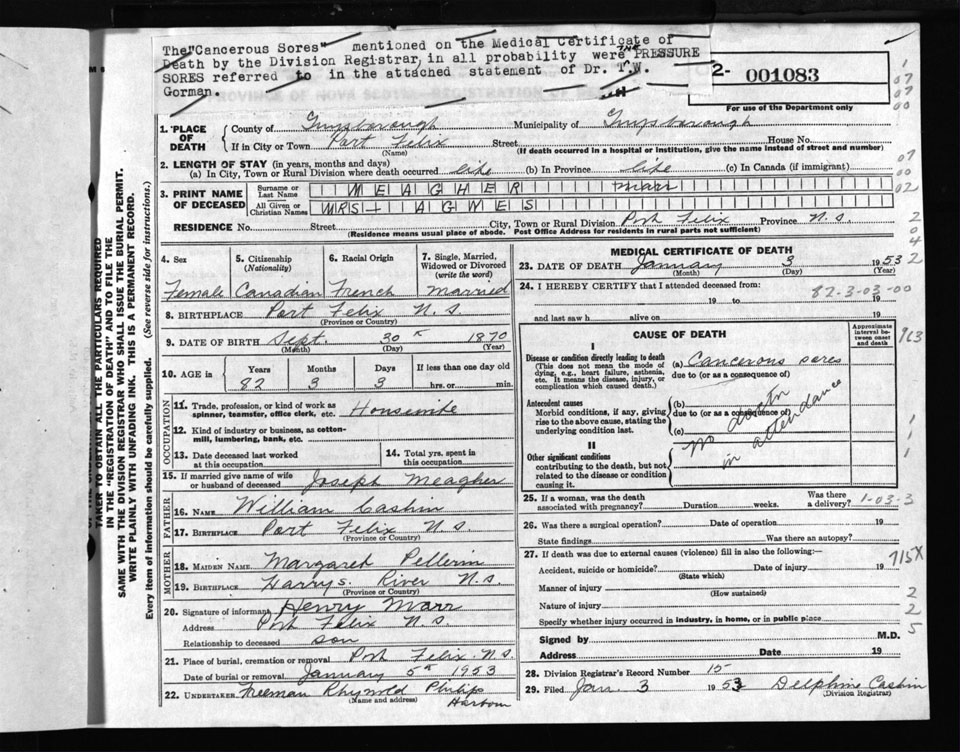 The "Cancerous Sores" mentioned on the Medical Certificate of
Death by the Division Registrar, in all probability were THE PRESSURE
SORES referred to in the attached statement of Dr. T.W.
Gorman.
2- 001083
For use of the Department only
1. PLACE OF DEATH
County of Guysborough Municipality of Guysborough
If in City or Town Port Felix Street House No.
(Name) (If death occurred in a hospital or institution, give the name instead of street and number)
2. LENGTH OF STAY (in years, months and days)
(a) In City, Town or Rural Division where death occurred life (b) In Province life (c) In Canada (if immigrant)
3. PRINT NAME OF DECEASED
Surname or Last Name MEAGHER
All Given or Christian Names MRS AGNES
RESIDENCE No. Street City, Town or Rural Division Port Felix Province N.S.
(Residence means usual place of abode. Post Office Address for residents in rural parts not sufficient)
4. Sex 5. Citizenship (Nationality) 6. Racial Origin 7. Single, Married, Widowed or Divorced (write the word)
Female Canadian French Married
8. BIRTHPLACE Port Felix N.S.
(Province or Country)
9. DATE OF BIRTH Sept. 30 1870
(Month) (Day) (Year)
10. AGE in Years Months Days If less than one day old
82 3 3 hrs. or min.
OCCUPATION
11. Trade, profession, or kind of work as spinner, teamster, office clerk, etc. Housewife
12. Kind of industry or business, as cotton-mill, lumbering, bank, etc.
13. Date deceased last worked at this occupation
14. Total yrs. spent in this occupation
15. If married give name of wife or husband of deceased Joseph Meagher
FATHER
16. NAME William Cashin
17. BIRTHPLACE Port Felix N.S.
(Province or Country)
MOTHER
18. MAIDEN NAME Margaret Pellerin
19. BIRTHPLACE Harrys River N.S.
(Province or Country)
20. Signature of informant Henry Marr
Address Port Felix N.S.
Relationship to deceased son
21. Place of burial, cremation or removal Port Felix N.S.
Date of burial or removal January 5 1953
22. UNDERTAKER Freeman Philips Harbour
(Name and address)
MEDICAL CERTIFICATE OF DEATH
23. DATE OF DEATH January 3 1953
(Month) (Day) (Year)
24. I HEREBY CERTIFY that I attended deceased from:
82-3-03-00
19 to 19
and last saw h alive on 19
CAUSE OF DEATH
Approximate interval between onset and death
I
Disease or condition directly leading to death
(This does not mean the mode of dying, e.g., heart failure, asthenia, etc. It means the disease, injury, or complication which caused death.)
(a) Cancerous sores
due to (or as a consequence of)
Antecedent causes
Morbid conditions, if any, giving rise to the above cause, stating the underlying condition last.
(b)
due to (or as a consequence of)
(c)
No doctor
in attendance
II
Other significant conditions
contributing to the death, but not related to the disease or condition causing it.
25. If a woman, was the death associated with pregnancy? Duration weeks. Was there a delivery? 1-03-3
26. Was there a surgical operation? Date of operation 19
State findings Was there an autopsy?
27. If death was due to external causes (violence) fill in also the following:—
Accident, suicide or homicide? Date of injury 19
(State which)
715X
Manner of injury
(How sustained)
Nature of injury
Specify whether injury occurred in industry, in home, or in public place
Signed by M.D.
Address Date 19
28. Division Registrar's Record Number 15
29. Filed Jan. 3 1953 Delphine Cashin
(Division Registrar)
TAKEN TO OBTAIN ALL THE PARTICULARS REQUIRED
IN THE "REGISTRATION OF DEATH" AND TO FILE THE
SAME WITH THE DIVISION REGISTRAR WHO SHALL ISSUE THE BURIAL PERMIT.
WRITE PLAINLY WITH UNFADING INK. THIS IS A PERMANENT RECORD.
Every item of information should be carefully supplied. (See reverse side for instructions.)